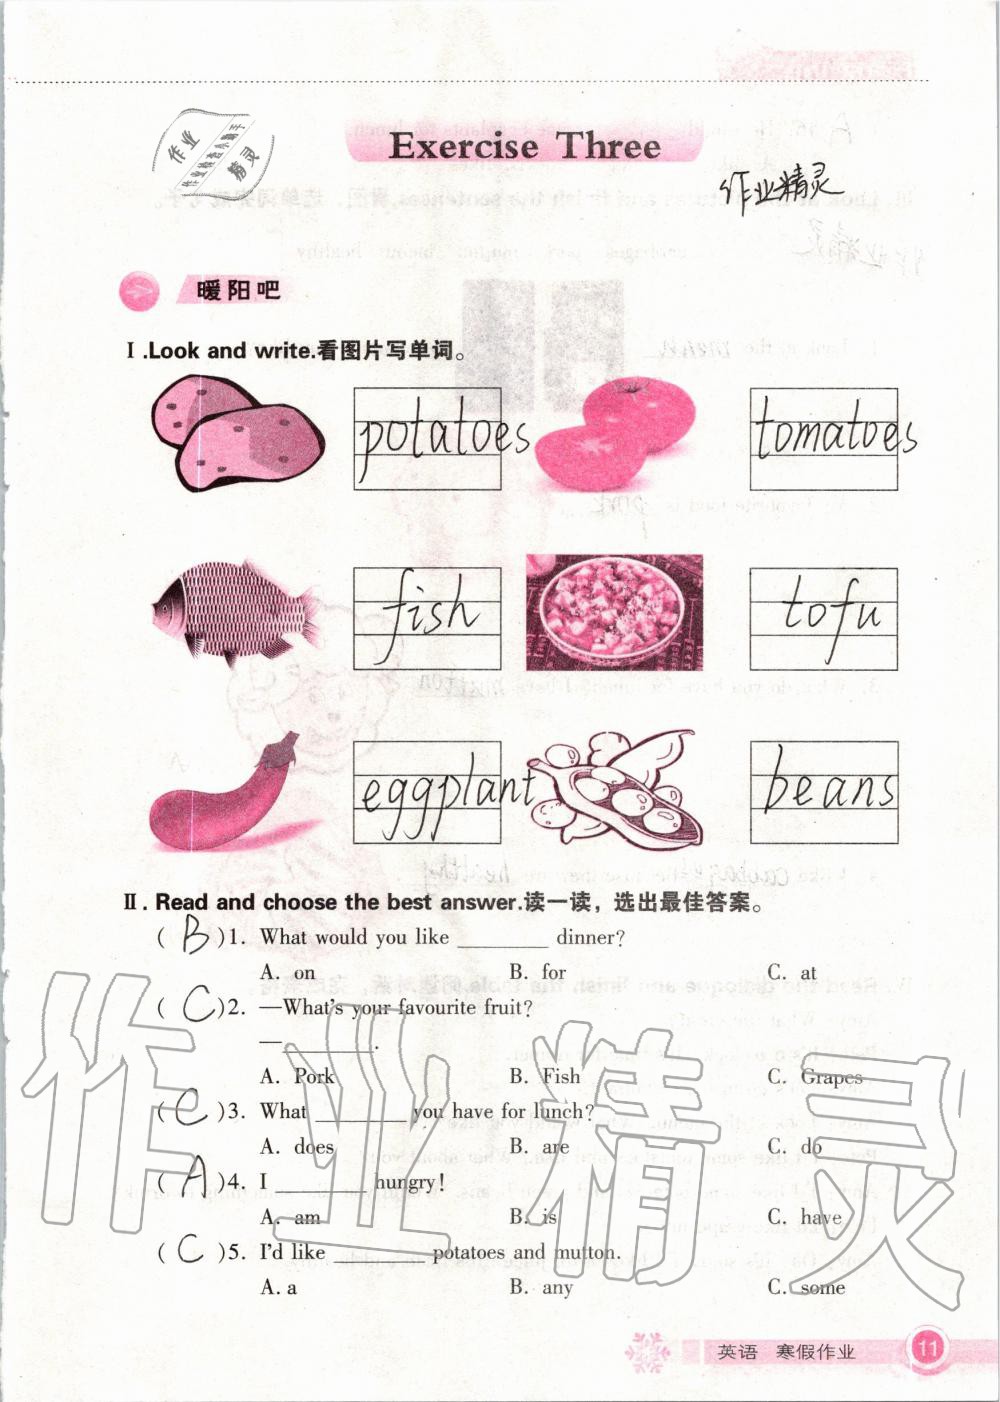 作业
作业检查小助手
精灵
Exercise Three
作业精灵
暖阳吧
Ⅰ.Look and write.看图片写单词。
potatoes tomatoes
fish tofu
eggplant beans
Ⅱ. Read and choose the best answer.读一读，选出最佳答案。
( B )1. What would you like ________ dinner?
A. on B. for C. at
( C )2. —What's your favourite fruit?
—________.
A. Pork B. Fish C. Grapes
( C )3. What ________ you have for lunch?
A. does B. are C. do
( A )4. I ________ hungry!
A. am B. is C. have
( C )5. I'd like ________ potatoes and mutton.
A. a B. any C. some
作业精灵
英语 寒假作业 11